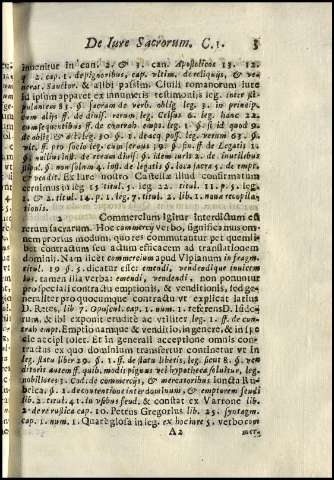 De Iure Sacrorum. C.1. 5
invenitur in can. 2. & 3. can. Apostolicos 13. 12.
q. 2. cap. 1. de pignoribus, cap. vltim. de reliquijs, & ve
nerat. Sanctor. & alibi passim. Civili romanorum iure
id ipsum apparet ex innumeris testimonijs leg. inter sti
pulantem 83. §. sacram de verb. oblig leg. 3. in princip.
cum alijs ff. de divis. rerum, leg. Celsus 6. leg. hanc 22.
cum sequentibus ff. de contrah. emp. leg. 1. §. sed id quod 9.
§. nullius inst. de rerum divis. §. idem iuris 2. de inutilibus
& vedit. Ex iure nostro Castellæ illud confirmatum
cernimus in leg 15 titul. 5. leg. 22. titul. 11. p. 5. leg.
2. & 2. titul. 14. p. 1. leg. 7. titul. 2. lib. 1. novæ recopila
tionis.
2 Commercium igitur interdictum est
rerum sacrarum. Hoc commercij verbo, significamus om-
nem prorsus modum, quo res commutantur per quemli
bet contractum seu actum efficacem ad translationem
dominij. Nam licet commercium apud Vlpianum in fragm.
titul. 19 §. 5. dicatur esse: emendi, vendendique invicem
ius. tamen illa verba: emendi, vendendi, non ponuntur
pro speciali contractu emptionis, & venditionis, sed ge-
neraliter pro quocumque contractu vt explicat latius
D. Retes, lib. 7. Opuscul. cap. 1. num. 1. referens D. Iudæ-
rum, & ibi exponit erudite ac vtiliter leg. 1. ff. de con-
trah empt. Emptio namque & venditio, in genere, & in spe
cie accipi solet. Et in generali acceptione omnis con-
tractus ex quo dominium transfertur continetur vt in
leg. statu liber 29. §. 1. ff. de statu liberis, leg. sicut 8. §. ven
ditoris autem ff. quib. modis pignus vel hypotheca solvitur, leg.
nobiliores 3. Cod. de commercijs, & mercatoribus iuncta Ru-
lib. 2. titul. 41. in vsibus feud. & constat ex Varrone lib.
2. de re rustica cap. 10. Petrus Gregorius lib. 25. syntagm.
cap. 1. num. 1. Quare glosa in leg. ex hoc iure 5. verbo com
A2 merc.